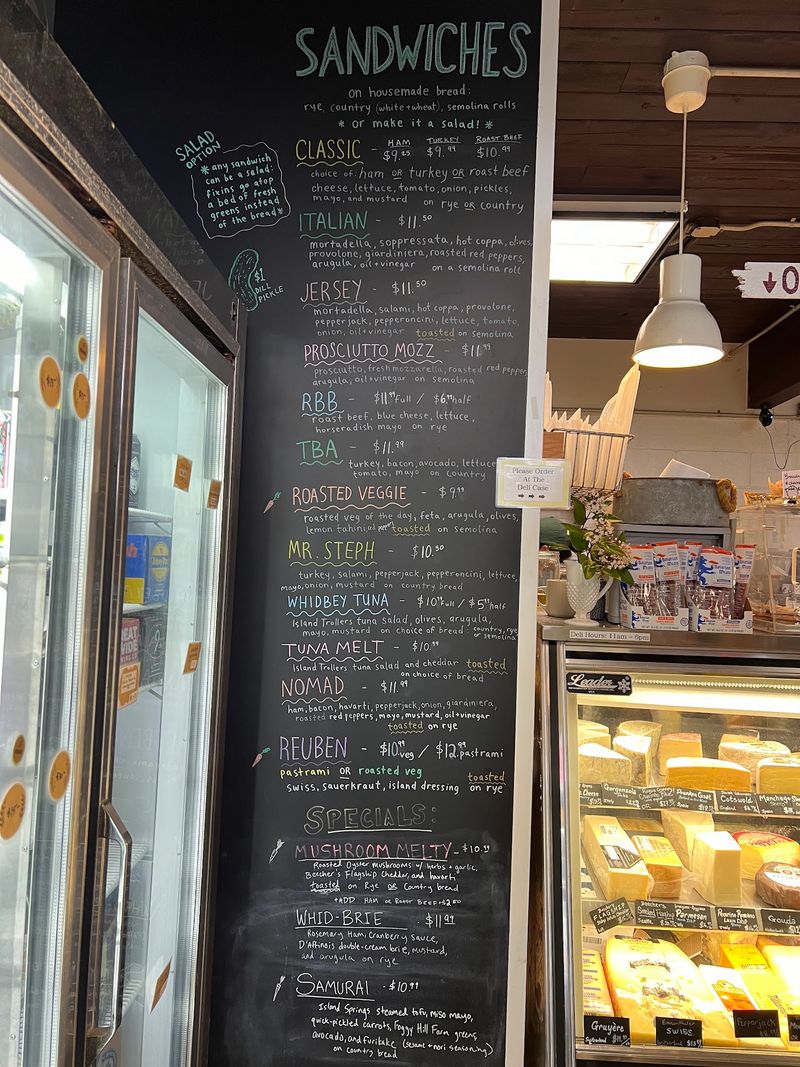 SANDWICHES
on housemade bread:
rye, country (white + wheat), semolina rolls
* or make it a salad! *
SALAD
OPTION
* any sandwich
can be a salad:
fixins go atop
a bed of fresh
greens instead
of the bread *
$1
DILL
PICKLE
CLASSIC - HAM TURKEY ROAST BEEF
$9.25 $9.99 $10.99
choice of: ham OR turkey OR roast beef
cheese, lettuce, tomato, onion, pickles,
mayo, and mustard on rye OR country
ITALIAN - $11.50
mortadella, soppressata, hot coppa, olives,
provolone, giardiniera, roasted red peppers,
arugula, oil + vinegar on a semolina roll
JERSEY - $11.50
mortadella, salami, hot coppa, provolone,
pepperjack, peperoncini, lettuce, tomato,
onion, oil + vinegar toasted on semolina
PROSCIUTTO MOZZ - $11.99
prosciutto, fresh mozzarella, roasted red peppers
arugula, oil + vinegar on semolina
RBB - $11.99 full / $6.99 half
roast beef, blue cheese, lettuce,
horseradish mayo on rye
TBA - $11.99
turkey, bacon, avocado, lettuce
tomato, mayo on country
ROASTED VEGGIE - $9.99
roasted veg of the day, feta, arugula, olives,
lemon tahini toasted on semolina
MR. STEPH - $10.50
turkey, salami, pepperjack, peperoncini, lettuce,
mayo, onion, mustard on country bread
WHIDBEY TUNA - $10.99 full / $5.99 half
Island Trollers tuna salad, olives, arugula,
mayo, mustard on choice of bread: country, rye
or semolina
TUNA MELT - $10.99
Island Trollers tuna salad and cheddar toasted
on choice of bread
NOMAD - $11.99
ham, bacon, havarti, pepperjack, onion, giardiniera,
roasted red peppers, mayo, mustard, oil + vinegar
toasted on rye
REUBEN - $10.99 veg / $12.99 pastrami
pastrami OR roasted veg toasted
swiss, sauerkraut, island dressing on rye
SPECIALS:
MUSHROOM MELTY - $10.99
Roasted Oyster mushrooms w/ herbs + garlic,
Beecher's Flagship Cheddar, and havarti
toasted on Rye OR Country bread
+ADD HAM or ROAST BEEF +$2.50
WHID-BRIE - $11.99
Rosemary Ham, Cranberry Sauce,
D'Affinois double-cream brie, mustard,
and arugula on rye
SAMURAI - $10.99
Island Springs steamed tofu, miso mayo,
quick-pickled carrots, Foggy Hill Farm greens,
avocado, and furikake (sesame + nori seasoning)
on country bread
Please Order
At The
Deli Case
Deli Hours: 11am - 6pm
Leader
Gorgonzola
Cotswold
Manchego
FLAGSHIP
Parmesan
Gouda
Gruyère
SWISS
Pepperjack